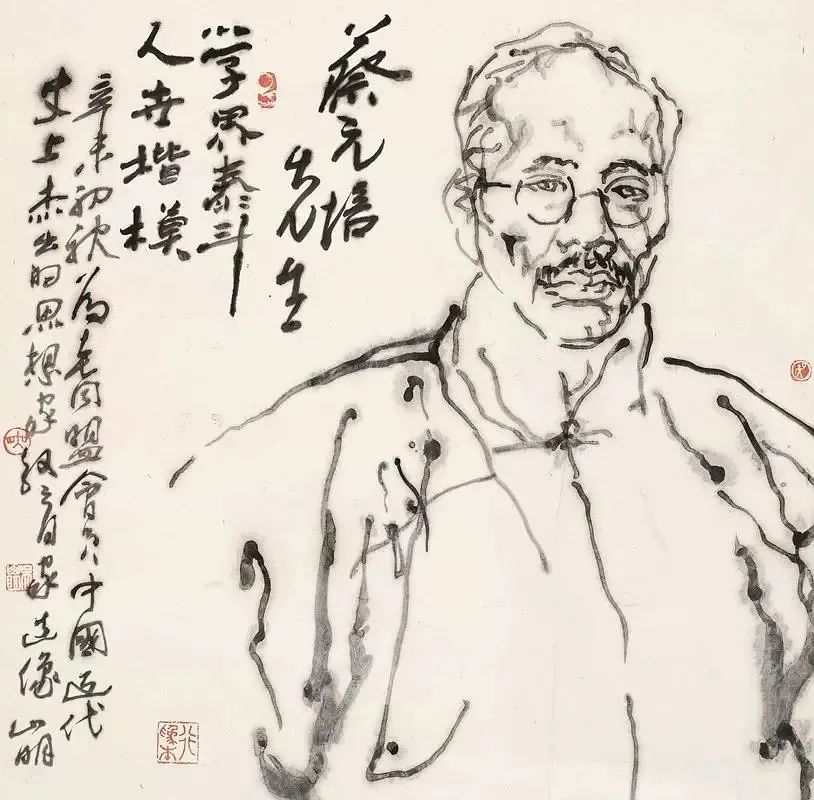 蔡元培
先生
学界泰斗
人世楷模
辛未初秋为老同盟会员中國近代
史上杰出的思想家教育家造像山明